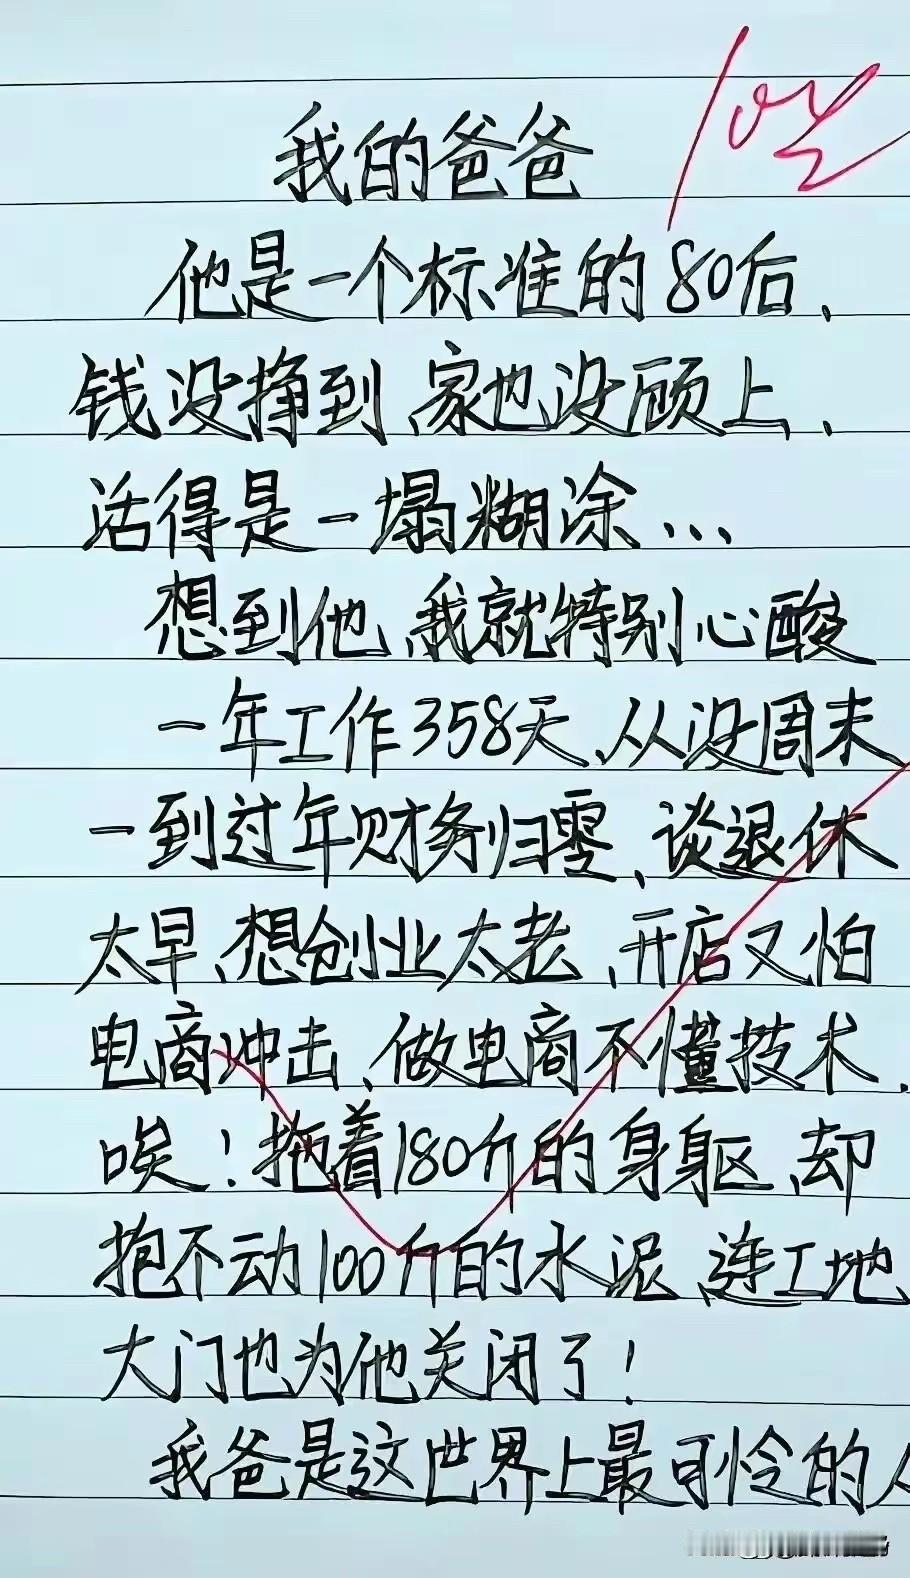 我的爸爸
他是一个标准的80后、
钱没挣到、家也没顾上、
活得是一塌糊涂...
想到他、我就特别心酸
一年工作358天、从没周末
一到过年财务归零、谈退休
太早、想创业太老、开店又怕
电商冲击、做电商不懂技术、
唉！拖着180斤的身躯、却
抱不动100斤的水泥、连工地
大门也为他关闭了！
我爸是这世界上最可怜的人